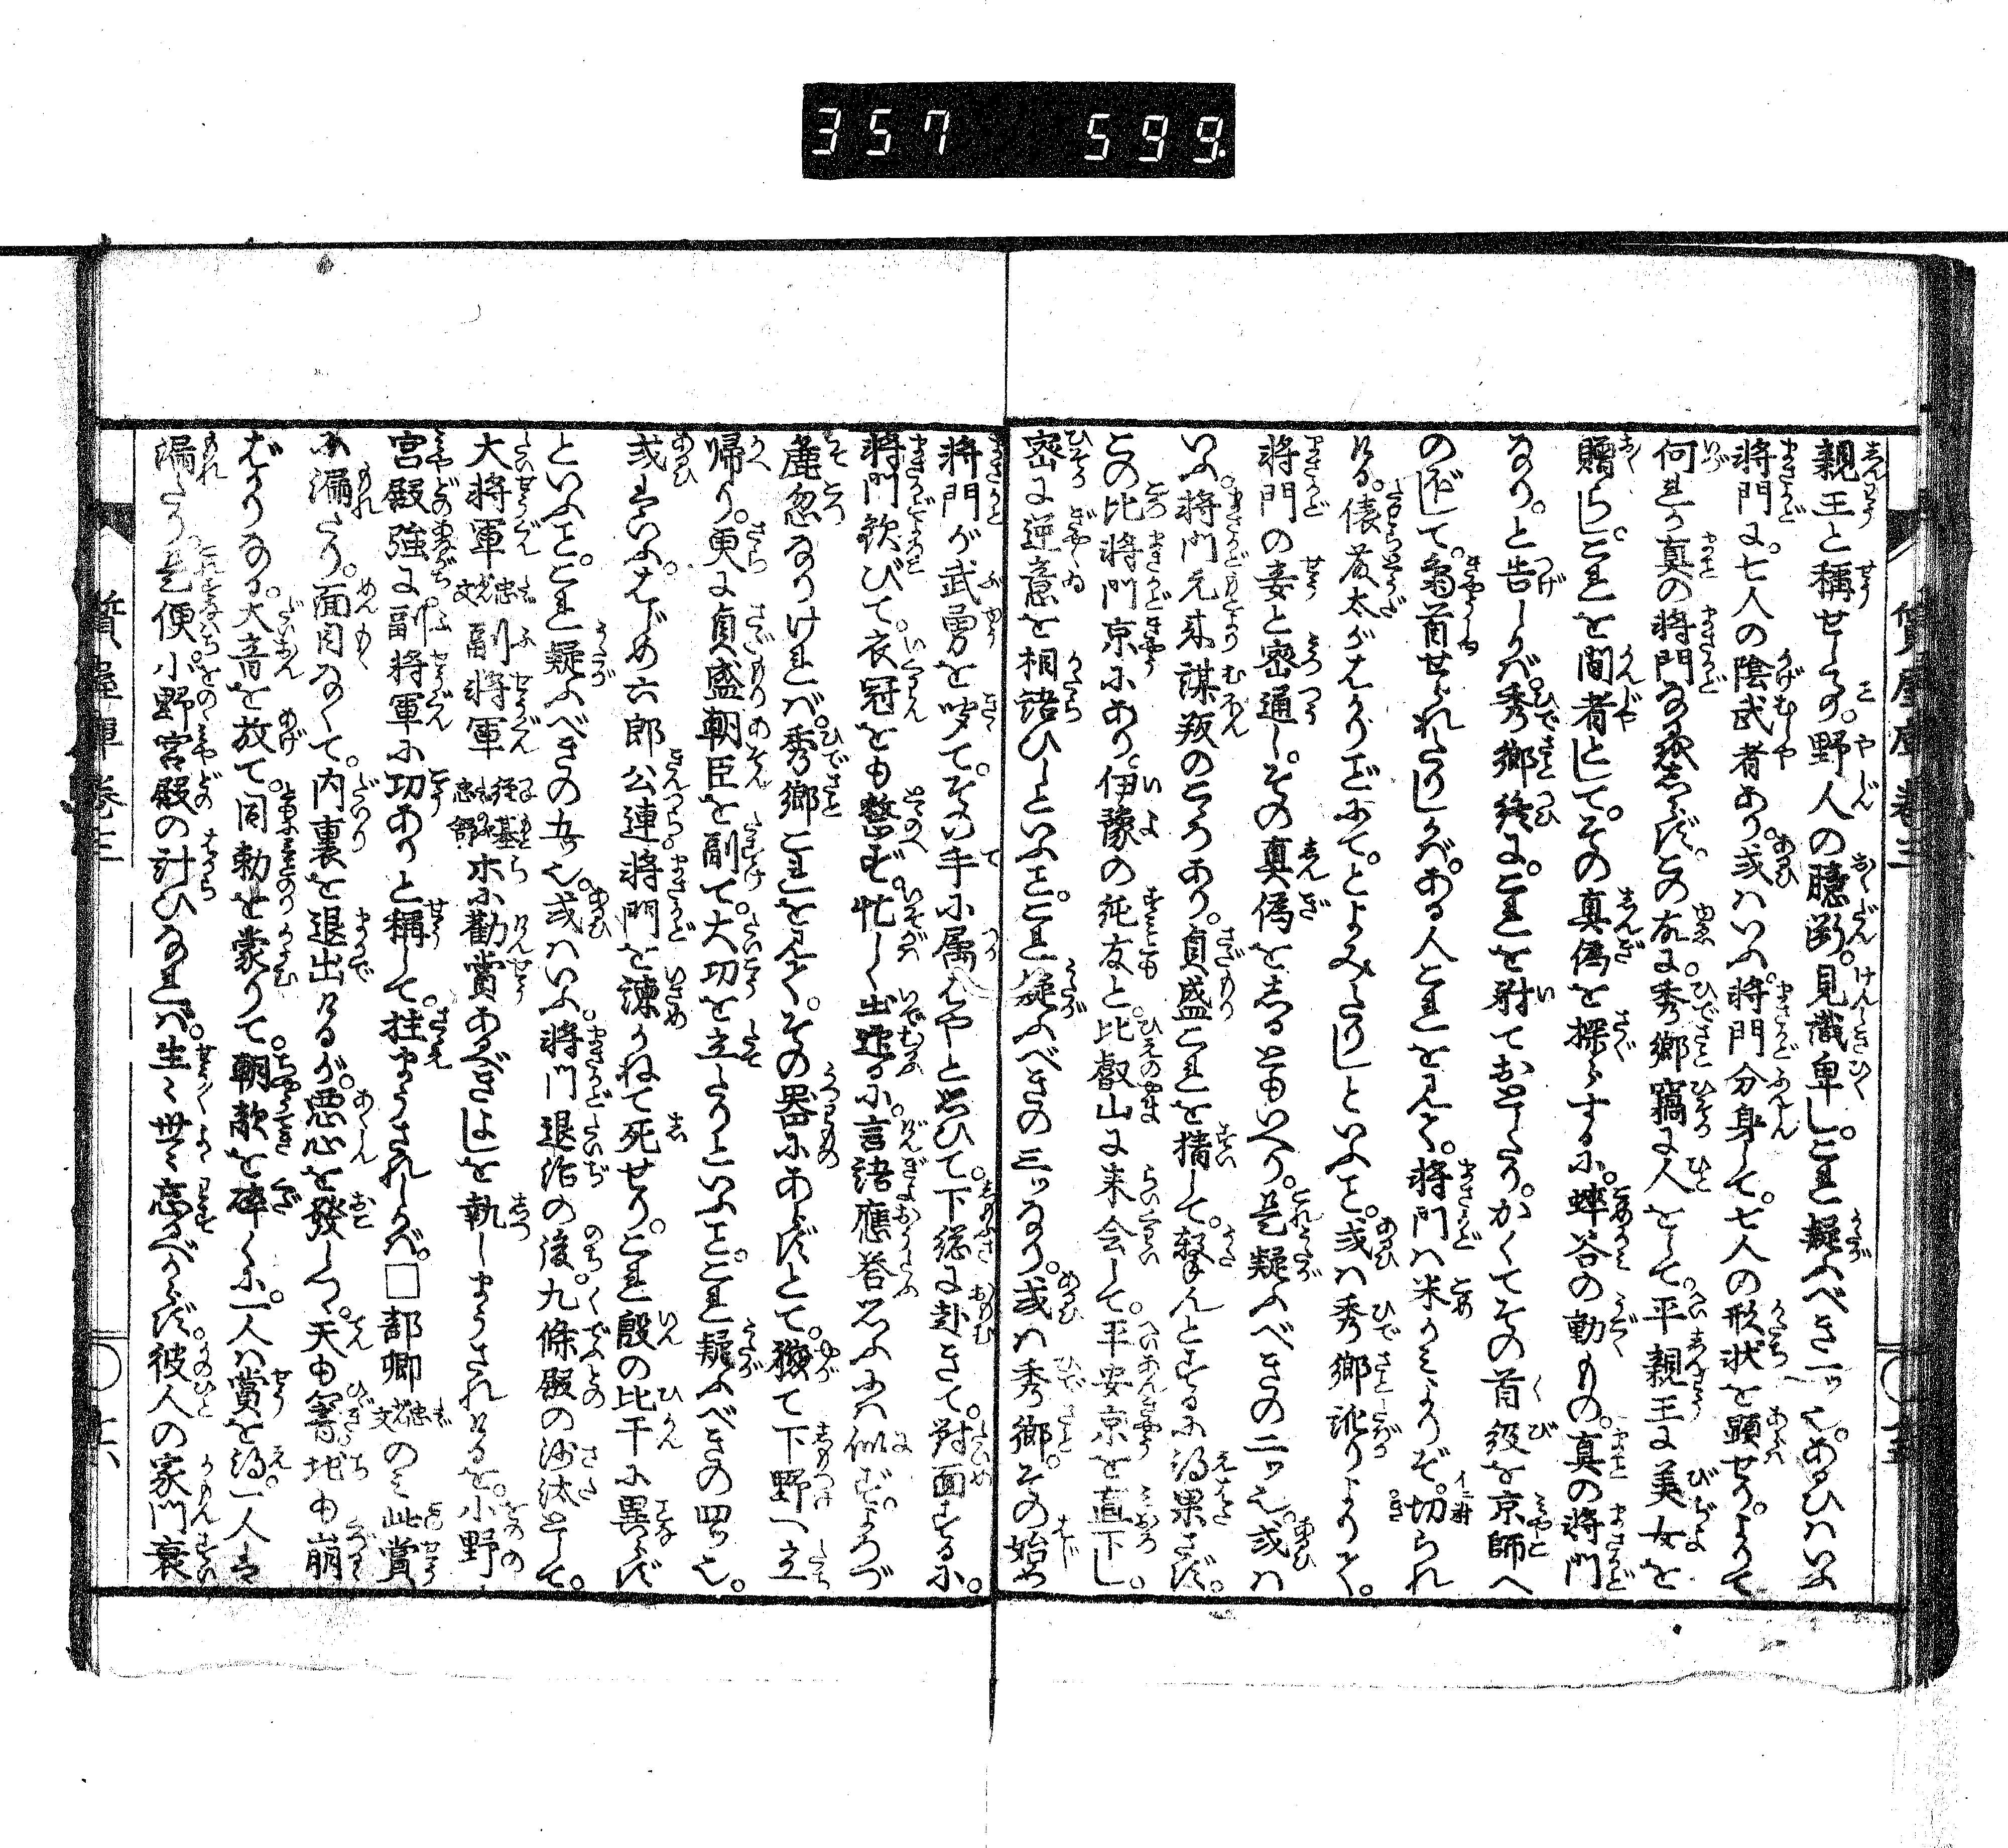 357 599
親王と稱せしるの。野人の臆断。見識卑し。これ疑ふべき一ッ也。あるひはいふ
將門に。七人の陰武者あり。或はいふ。將門分身して。七人の形状を顕せり。よりて
何れか真の將門なる𛂞しらず。この故に。秀郷竊に人をして。平親王に美女を
贈らし。これを間者として。その真偽を探らするに。蟀谷の動くもの。真の將門
なり。と告しかば。秀郷終に。これを射ておとしたり。かくてその首級を京師へ
のぼして。梟首せられたりしかば。ある人これを見て。將門は米かみよりぞ。切られ
ける。俵藤太がはかりごとにて。とよみたりしといふこと。或は秀郷訛りよりて。
將門の妾と密通し。その真偽をしるともいへり。是疑ふべきの二ッ也。或は
いふ。將門元来謀叛のこゝろあり。貞盛これを猜して。撃んとするに得果さず。
この比將門京にあり。伊豫の純友と。比叡山に来会して。平安京を直下し。
密に逆意を相語ひしといふこと。これ疑ふべきの三ッなり。或は秀郷。その始め
將門が武勇を聞て。その手に属ばやと思ひて。下総に赴きて。對面するに。
將門歓びて。衣冠をも整ず。忙しく出迎るに。言語應答思ふには似ず。よろづ
麁忽なりければ。秀郷これを見て。その器にあらずとて。軈て下野へ立
帰り。更に貞盛朝臣を副て。大功を立たりといふこと。これ疑ふべきの四ッ也。
或はいふ。はじめ六郎公連。將門を諫かねて死せり。これ殷の比干に異らず
といふこと。これ疑ふべきの五ッ也。或はいふ。將門退治の後。九條殿の沙汰として。
大將軍忠文副將軍経基忠舒等に勸賞あるべきよしを執しまうされけるを。小野
宮殿強に副將軍に功ありと稱して。拄まうされしかば。□部卿忠文のミ此賞
に漏たり。面目なくて。内裏を退出けるが。悪心を發しつゝ。天も響き地も崩
ばかりなる。大音を放て。同勅を蒙りて。朝敵を碎くに。一人は賞を得。一人は
漏たり。是便。小野宮殿の計ひなれば。生々世々忘るべからず。彼人の家門衰
質屋庫巻三
〇十五
質屋庫巻三
〇十六